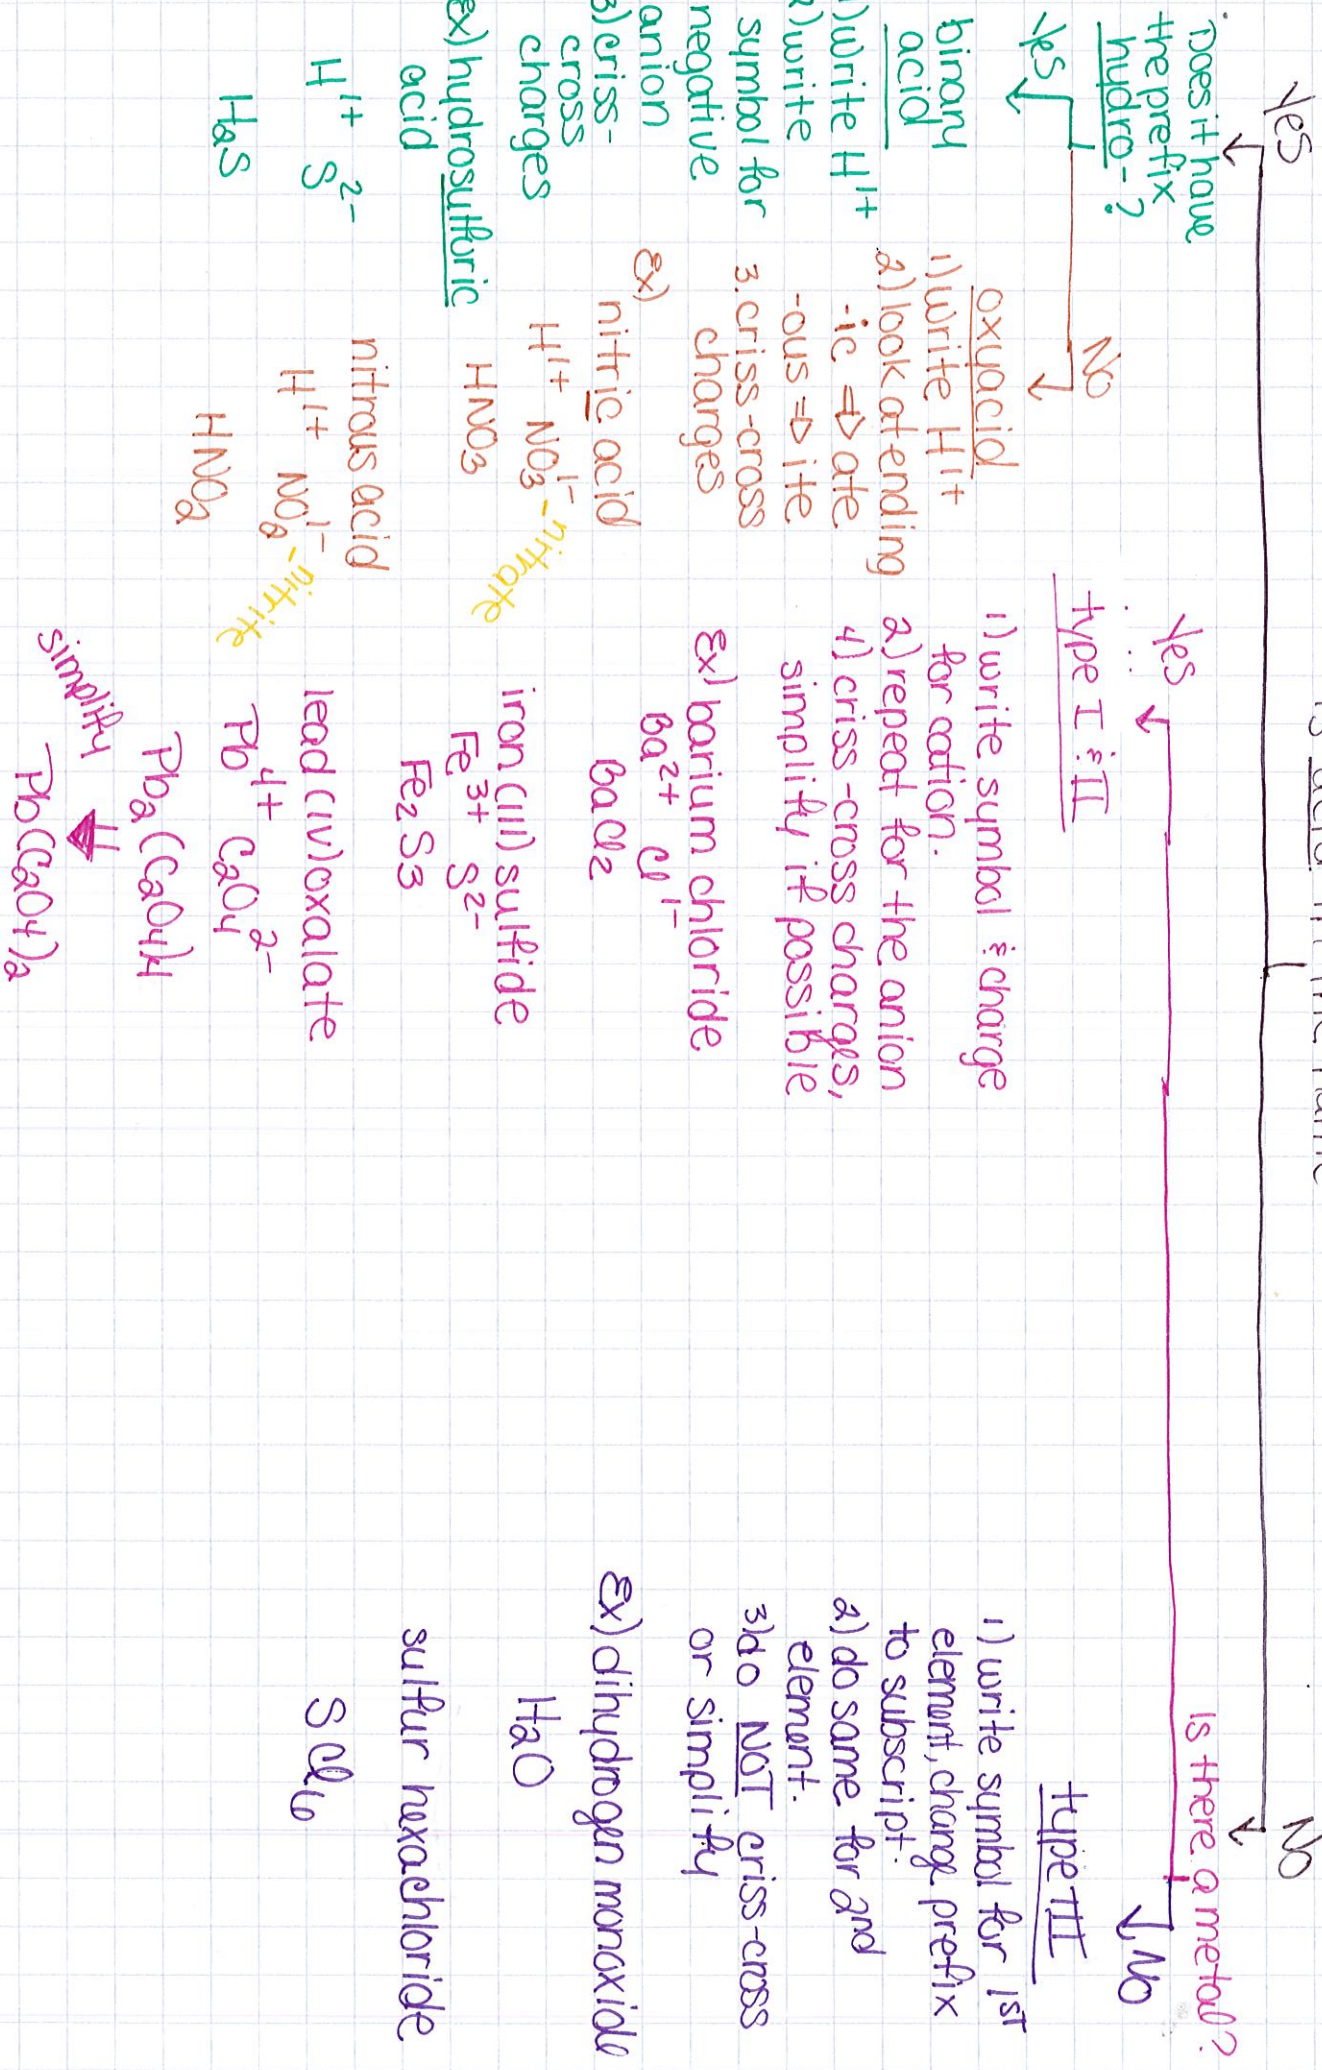 is acid in the name
Yes
No
Does it have
the prefix
hydro-?
Yes
No
binary
acid
1) write H¹⁺
2) write
symbol for
negative
anion
3) criss-
cross
charges
Ex) hydrosulfuric
acid
H¹⁺ S²⁻
H₂S
oxyacid
1) write H¹⁺
2) look at ending
-ic ⇒ ate
-ous ⇒ ite
3. criss-cross
charges
Ex)
nitric acid
H¹⁺ NO₃¹⁻ - nitrate
HNO₃
nitrous acid
H¹⁺ NO₂¹⁻ - nitrite
HNO₂
Is there a metal?
Yes
No
type I & II
1) write symbol & charge
for cation.
2) repeat for the anion
4) criss-cross charges,
simplify if possible
Ex) barium chloride
Ba²⁺ Cl¹⁻
BaCl₂
iron (III) sulfide
Fe³⁺ S²⁻
Fe₂S₃
lead (IV) oxalate
Pb⁴⁺ C₂O₄²⁻
Pb₂(C₂O₄)₄
simplify
Pb(C₂O₄)₂
type III
1) write symbol for 1ST
element, change prefix
to subscript.
2) do same for 2nd
element.
3) do NOT criss-cross
or simplify
Ex) dihydrogen monoxide
H₂O
sulfur hexachloride
SCl₆